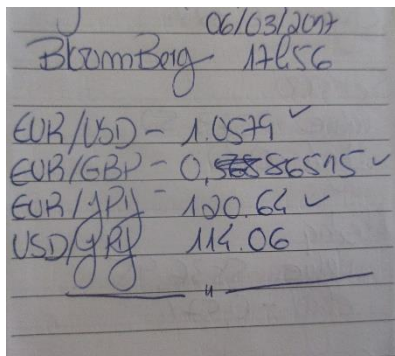 06/03/2017
BloomBerg 17h56
EUR/USD - 1.0579 ✓
EUR/GBP - 0,86515 ✓
EUR/JPY - 120.64 ✓
USD/JPY 114.06